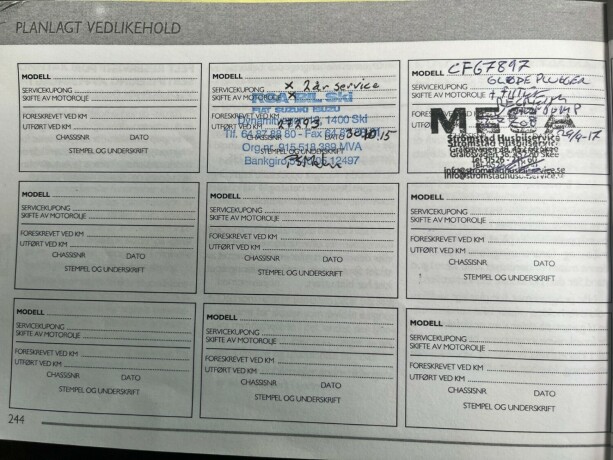 PLANLAGT VEDLIKEHOLD
MODELL
SERVICEKUPONG
SKIFTE AV MOTOROLJE
FORESKREVET VED KM
UTFØRT VED KM
CHASSISNR DATO
STEMPEL OG UNDERSKRIFT
MODELL
x 2 år service
SERVICEKUPONG
SKIFTE AV MOTOROLJE x
FIAT SUZUKI ISUZU
FORESKREVET VED KM
1400 Ski
UTFØRT VED KM 27293
Tlf. 64 87 88 80 - Fax
Org.nr. 915 518 389 MVA
Bankgiro
12497
MODELL CF67897
GLØDEPLUGGER
SERVICEKUPONG
SKIFTE AV MOTOROLJE
FORESKREVET VED KM
META
UTFØRT VED KM
Strömstad Husbilservice
info@stromstadhusbilservice.se
MODELL
SERVICEKUPONG
SKIFTE AV MOTOROLJE
FORESKREVET VED KM
UTFØRT VED KM
CHASSISNR DATO
STEMPEL OG UNDERSKRIFT
MODELL
SERVICEKUPONG
SKIFTE AV MOTOROLJE
FORESKREVET VED KM
UTFØRT VED KM
CHASSISNR DATO
STEMPEL OG UNDERSKRIFT
MODELL
SERVICEKUPONG
SKIFTE AV MOTOROLJE
FORESKREVET VED KM
UTFØRT VED KM
CHASSISNR DATO
STEMPEL OG UNDERSKRIFT
MODELL
SERVICEKUPONG
SKIFTE AV MOTOROLJE
FORESKREVET VED KM
UTFØRT VED KM
CHASSISNR DATO
STEMPEL OG UNDERSKRIFT
MODELL
SERVICEKUPONG
SKIFTE AV MOTOROLJE
FORESKREVET VED KM
UTFØRT VED KM
CHASSISNR DATO
STEMPEL OG UNDERSKRIFT
MODELL
SERVICEKUPONG
SKIFTE AV MOTOROLJE
FORESKREVET VED KM
UTFØRT VED KM
CHASSISNR DATO
STEMPEL OG UNDERSKRIFT
244